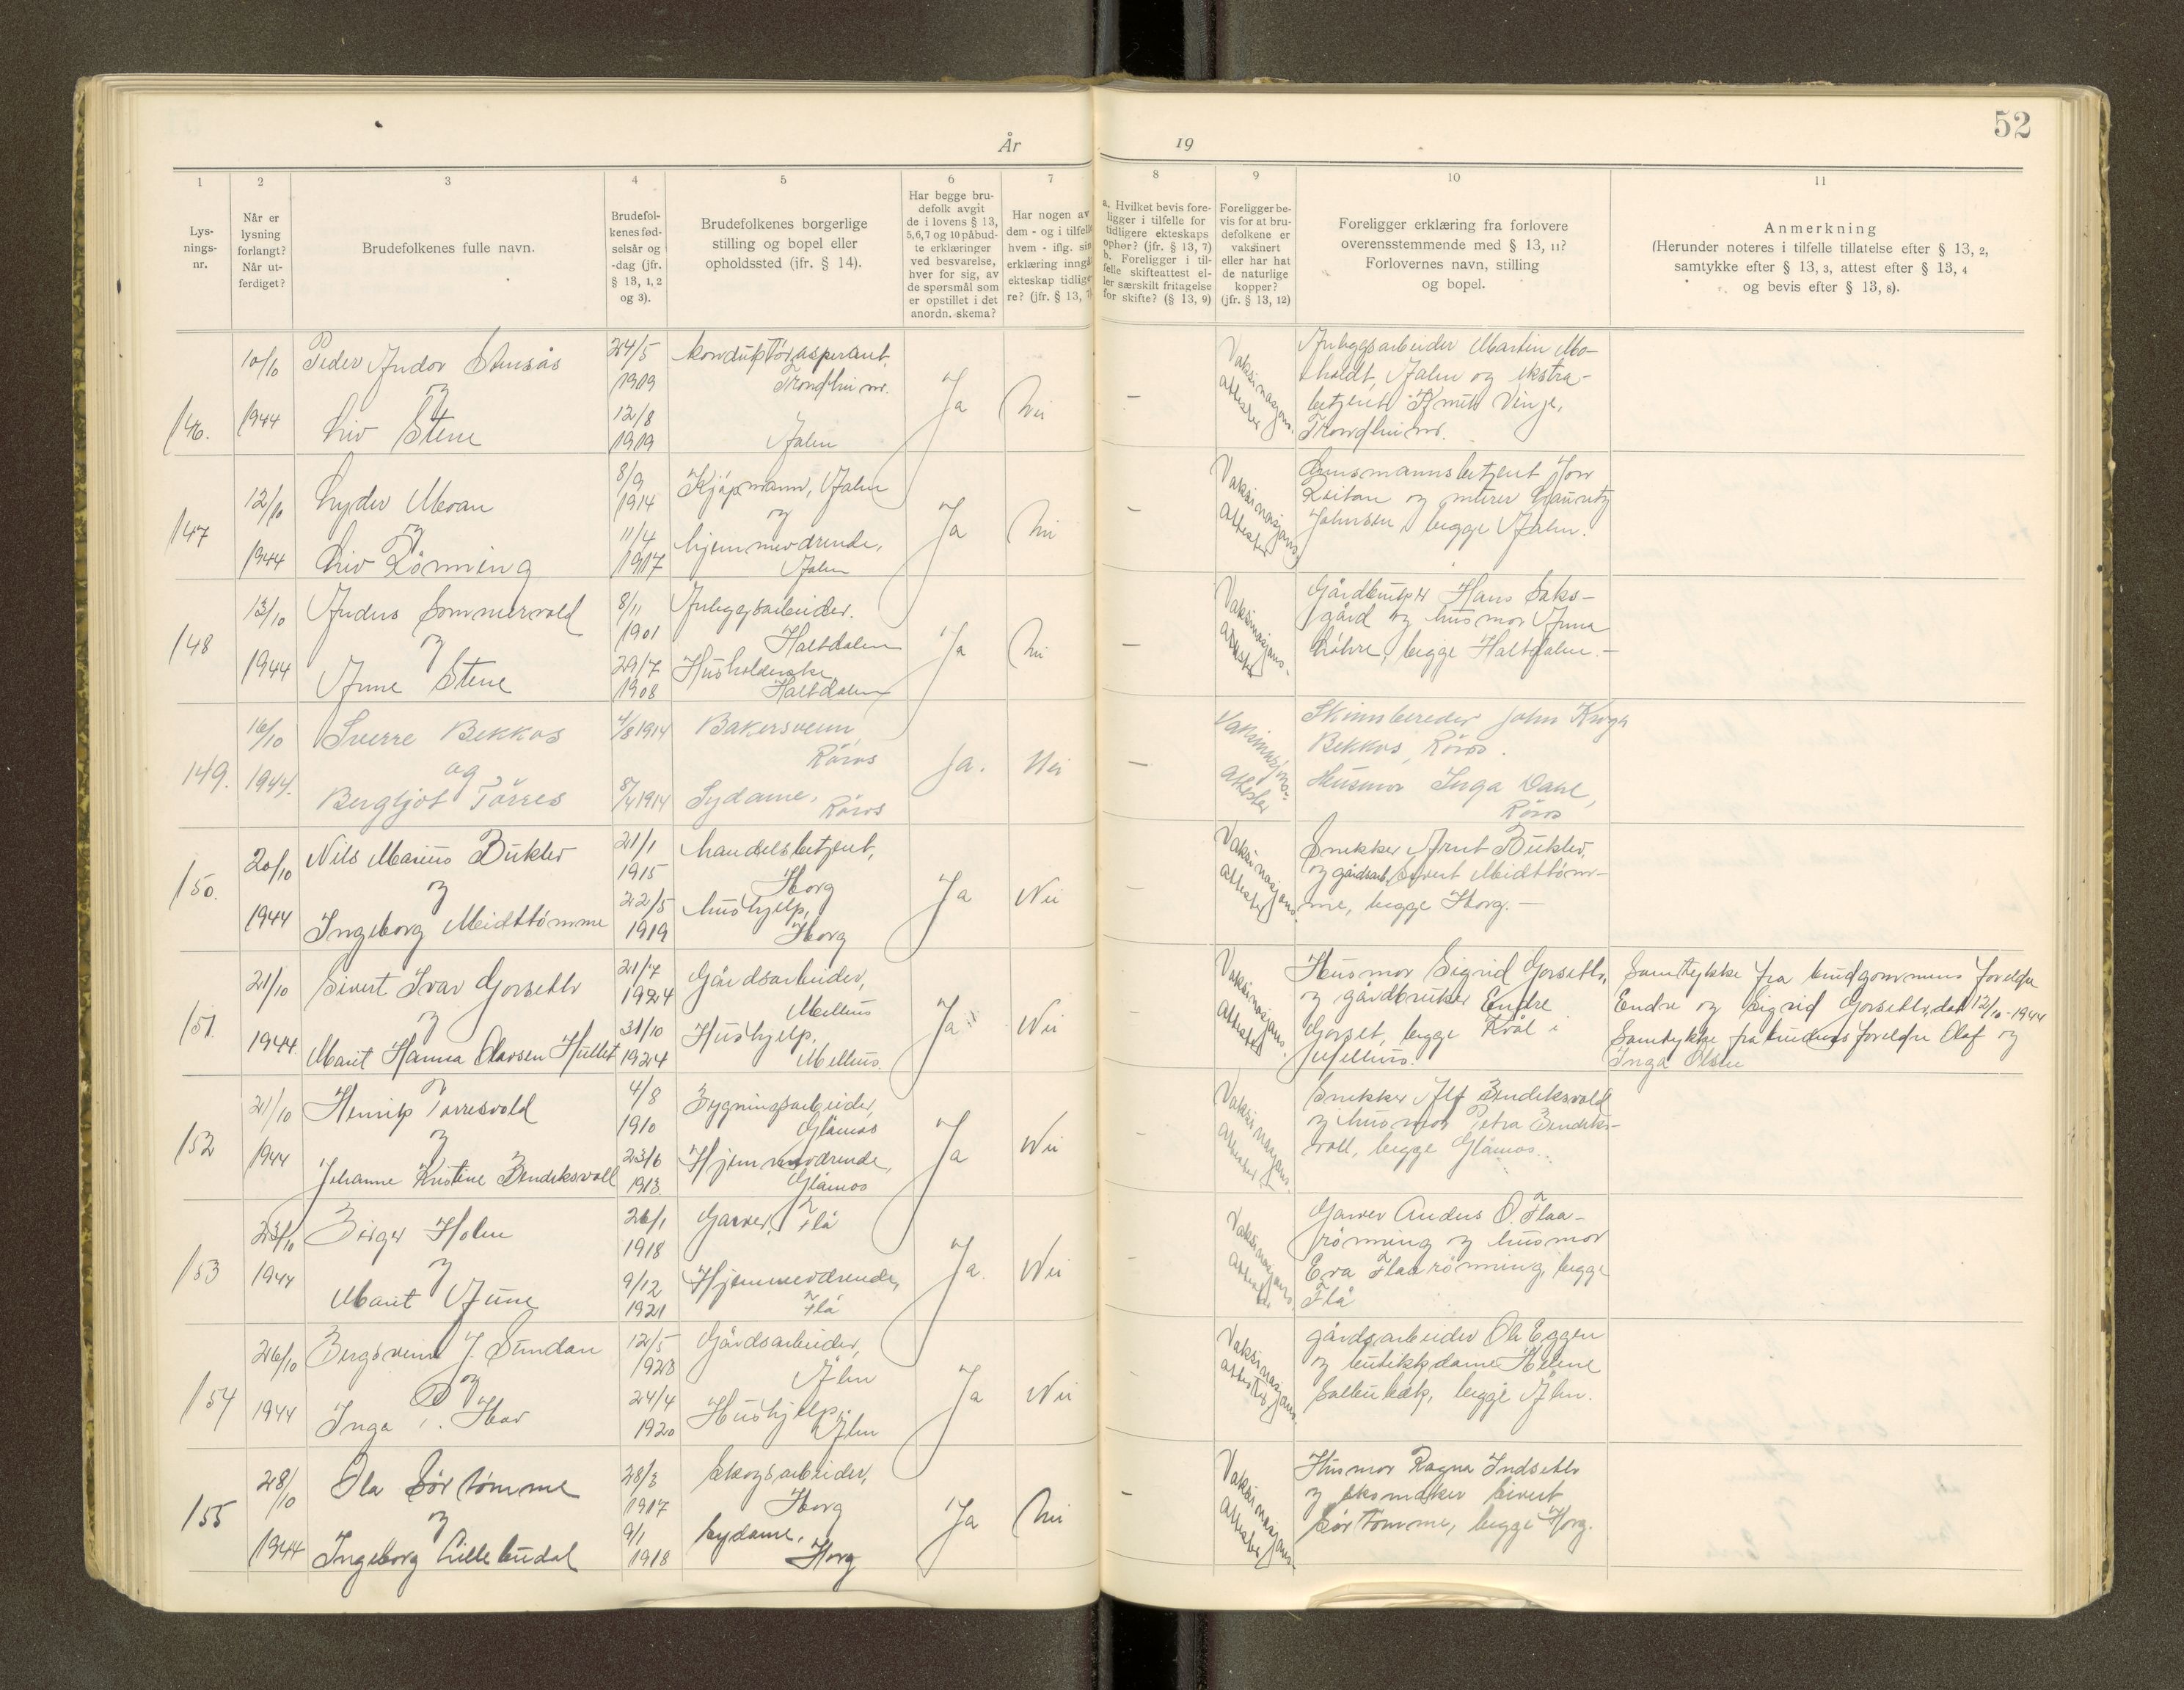 52
År 19
1 2 3 4 5 6 7 8 9 10 11
Lys-
nings-
nr.
Når er
lysning
forlangt?
Når ut-
ferdiget?
Brudefolkenes fulle navn.
Brudefol-
kenes fød-
selsår og
-dag (jfr.
§ 13, 1, 2
og 3).
Brudefolkenes borgerlige
stilling og bopel eller
opholdssted (jfr. § 14).
Har begge bru-
defolk avgit
de i lovens § 13,
5, 6, 7 og 10 påbud-
te erklæringer
ved besvarelse,
hver for sig, av
de spørsmål som
er opstillet i det
anordn. skema?
Har nogen av
dem - og i tilfelle
hvem - iflg. sin
erklæring inngå
ekteskap tidlige
re? (jfr. § 13, 7)
a. Hvilket bevis fore-
ligger i tilfelle for
tidligere ekteskaps
ophør? (jfr. § 13, 7)
b. Foreligger i til-
felle skifteattest el-
ler særskilt fritagelse
for skifte? (§ 13, 9)
Foreligger be-
vis for at bru-
defolkene er
vaksinert
eller har hat
de naturlige
kopper?
(jfr. § 13, 12)
Foreligger erklæring fra forlovere
overensstemmende med § 13, 11?
Forlovernes navn, stilling
og bopel.
Anmerkning
(Herunder noteres i tilfelle tillatelse efter § 13, 2,
samtykke efter § 13, 3, attest efter § 13, 4
og bevis efter § 13, 8).
146.
10/10
1944
Peder Andor
og
Liv Stene
24/5
1919
12/8
1919
konduktøraspirant,
Trondheim.
Ålen
Ja
Nei
-
Vaksinasjons-
attester
Anleggsarbeider Martin Mo-
holdt, Ålen og ekstra-
betjent Knut Vinje,
Trondheim.
147
12/10
1944
Lyder Moan
og
Liv Rønning
8/9
1914
11/4
1917
Kjøpmann, Ålen
og
hjemmeværende,
Ålen
Ja
Nei
-
Vaksinasjons-
attester
Lensmannsbetjent Jon
Reitan og murer Lauritz
Johnsen, begge Ålen.
148
13/10
1944
Anders Sommervold
og
Anne Stene
8/11
1901
29/7
1908
Anleggsarbeider.
Haltdalen
Husholderske
Haltdalen
Ja
Nei
-
Vaksinasjons-
attester
Gårdbruker Hans Saks-
gård og husmor Anna
begge Haltdalen.-
149.
16/10
1944.
Sverre Bekkos
og
Bergljot Tørres
4/8 1914
8/4 1914
Bakersvenn,
Røros
Sydame,
Røros
Ja.
Nei
-
Vaksinasjons-
attester
Skinnbereder John Krogh
Bekkos, Røros.
Husmor Inga Dahl,
Røros
150.
20/10
1944
Nils Marius Buklev
og
Ingeborg Midttømme
21/1
1915
22/5
1919
handelsbetjent,
Horg
hushjelp,
Horg
Ja
Nei
-
Vaksinasjons-
attester
Snekker Arnt Buklev,
og gårdsarb. Sivert Midttøm-
me, begge Horg.-
151.
21/10
1944.
Sivert Ivar Gorsetlv
og
Marit Hanna Olavsen
21/7
1924
31/10
1924
Gårdsarbeider,
Melhus
Hushjelp,
Melhus.
Ja
Nei
Vaksinasjons-
attester
Husmor Sigrid Gorsetlv.
og gårdbruker Endre
Gorset, begge Kvål i
Melhus.
Samtykke fra brudgommens foreldre
Endre og Sigrid Gorsetlv, dat. 12/10-1944
Samtykke fra brudens foreldre Olaf og
Inga Olsen
152
21/10
1944
Henrik Tørresvold
og
Johanne Kristine Bendiksvoll
4/8
1910
23/6
1913.
Bygningsarbeider,
Glåmos
Hjemmeværende,
Glåmos
Ja
Nei
-
Vaksinasjons-
attester
Snekker Alf Bendiksvold
og husmor Petra Bendiks-
voll, begge Glåmos.
153
23/10
1944
Birger Holm
og
Marit Aune
26/1
1918
9/12
1921
Garver, Flå
Hjemmeværende,
Flå
Ja.
Nei
-
Vaksinasjons-
attester
Garver Anders O. Flaa-
rønning og husmor
Eva Flaarønning, begge
Flå
154
26/10
1944
Bergsvein J. Sundan
og
Inga
12/5
1923
24/4
1920
Gårdsarbeider,
Ålen
Hushjelp,
Ålen
Ja
Nei
Vaksinasjons-
attester
gårdsarbeider Ole Eggen
og butikkdame Helene
begge Ålen.
155
28/10
1944
Ola Sørtømme
og
Ingeborg Lillebudal
28/3
1917
9/1
1918
Skogsarbeider,
Horg
sydame,
Horg
Ja
Nei
-
Vaksinasjons-
attester
Husmor Ragna Indsetlv
og skomaker Sivert
Sørtømme, begge Horg.